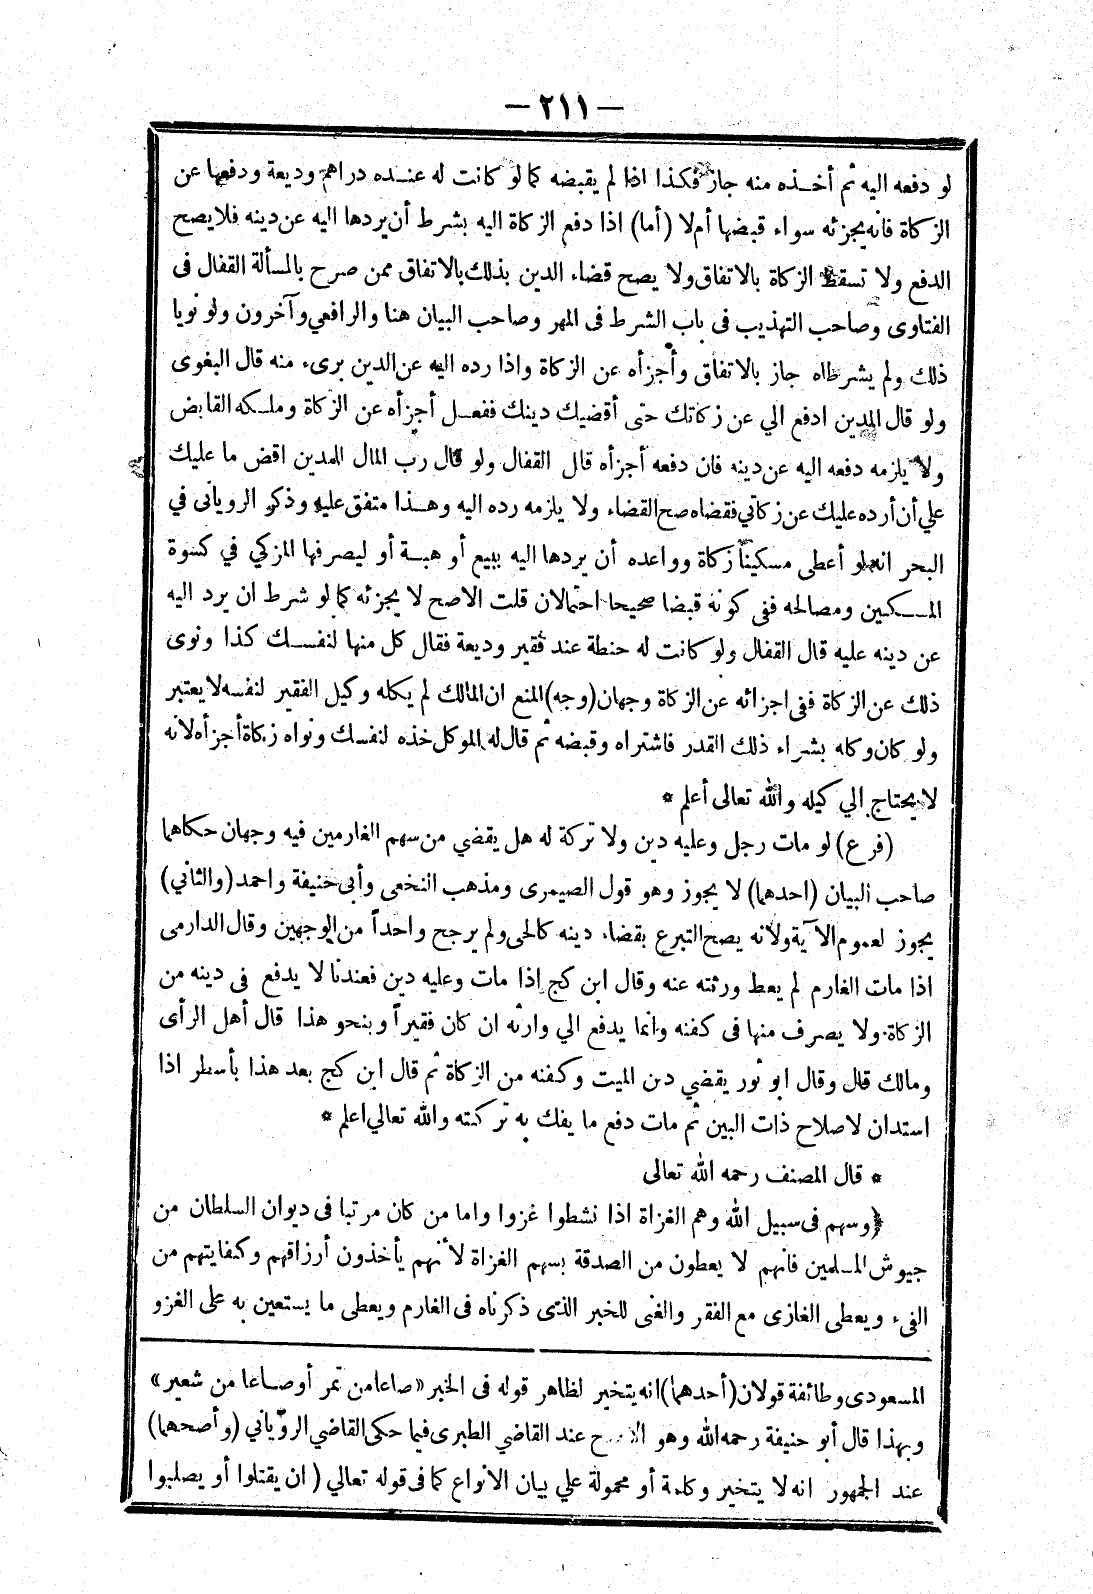 — ٢١١ —
لو دفعه اليه ثم أخذه منه جاز فكذا اذا لم يقبضه كما لو كانت له عنده دراهم وديعة ودفعها عن
الزكاة فانه يجزئه سواء قبضها أم لا (أما) اذا دفع الزكاة اليه بشرط أن يردها اليه عن دينه فلا يصح
الدفع ولا تسقط الزكاة بالاتفاق ولا يصح قضاء الدين بذلك بالاتفاق ممن صرح بالمسألة القفال فى
الفتاوى وصاحب التهذيب فى باب الشرط فى المهر وصاحب البيان هنا والرافعي وآخرون ولو نويا
ذلك ولم يشرطاه جاز بالاتفاق وأجزأه عن الزكاة واذا رده اليه عن الدين برىء منه قال البغوى
ولو قال المدين ادفع الي عن زكاتك حتى أقضيك دينك ففعل أجزأه عن الزكاة وملكه القابض
ولا يلزمه دفعه اليه عن دينه فان دفعه أجزأه قال القفال ولو قال رب المال للمدين اقض ما عليك
علي أن أرده عليك عن زكاتي فقضاه صح القضاء ولا يلزمه رده اليه وهذا متفق عليه وذكر الرويانى في
البحر انه لو أعطى مسكيناً زكاة وواعده أن يردها اليه ببيع أو هبة أو ليصرفها المزكي في كسوة
المسكين ومصالحه ففى كونه قبضا صحيحا احتمالان قلت الاصح لا يجزئه كما لو شرط ان يرد اليه
عن دينه عليه قال القفال ولو كانت له حنطة عند فقير وديعة فقال كل منها لنفسك كذا ونوى
ذلك عن الزكاة ففى اجزائه عن الزكاة وجهان (وجه) المنع ان المالك لم يكله وكيل الفقير لنفسه لا يعتبر
ولو كان وكله بشراء ذلك القدر فاشتراه وقبضه ثم قال له الموكل خذه لنفسك ونواه زكاة أجزأه لانه
لا يحتاج الي كيله والله تعالى أعلم *
(فرع) لو مات رجل وعليه دين ولا تركة له هل يقضي من سهم الغارمين فيه وجهان حكاهما
صاحب البيان (احدهما) لا يجوز وهو قول الصيمرى ومذهب النخعى وأبى حنيفة واحمد (والثاني)
يجوز لعموم الآية ولانه يصح التبرع بقضاء دينه كالحى ولم يرجح واحداً من الوجهين وقال الدارمى
اذا مات الغارم لم يعط ورثته عنه وقال ابن كج اذا مات وعليه دين فعندنا لا يدفع فى دينه من
الزكاة ولا يصرف منها فى كفنه وانما يدفع الي وارثه ان كان فقيراً وبنحو هذا قال أهل الرأى
ومالك قال وقال ابو ثور يقضي دين الميت وكفنه من الزكاة ثم قال ابن كج بعد هذا بأسطر اذا
استدان لاصلاح ذات البين ثم مات دفع ما يفك به تركته والله تعالي اعلم *
* قال المصنف رحمه الله تعالى
﴿وسهم فى سبيل الله وهم الغزاة اذا نشطوا غزوا واما من كان مرتبا فى ديوان السلطان من
جيوش المسلمين فانهم لا يعطون من الصدقة بسهم الغزاة لأنهم يأخذون أرزاقهم وكفايتهم من
الفىء ويعطى الغازى مع الفقر والغنى للخبر الذى ذكرناه فى الغارم ويعطى ما يستعين به على الغزو
المسعودى وطائفة قولان (أحدهما) انه يتخير لظاهر قوله فى الخبر «صاعا من تمر أو صاعا من شعير»
وبهذا قال أبو حنيفة رحمه الله وهو عند القاضي الطبرى فيما حكى القاضي الرويّاني (وأصحهما)
عند الجمهور انه لا يتخير وكلمة أو محمولة علي بيان الانواع كما فى قوله تعالي (ان يقتلوا أو يصلبوا